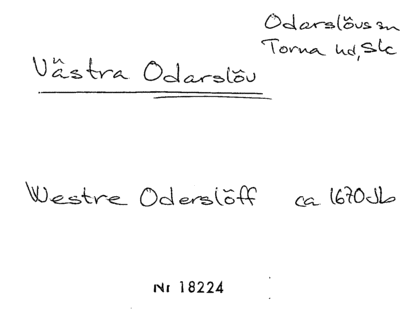 Odarslövs sn
Torna hd, Sk
Västra Odarslöv
Westre Oderslöff ca 1670 Jb
Nr 18224